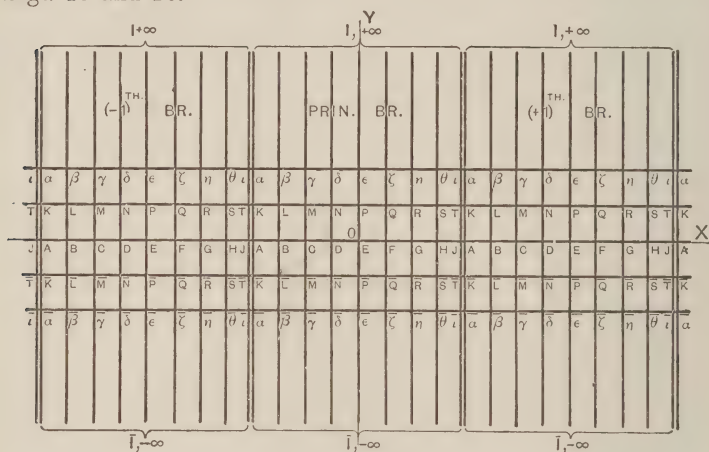 Y
I+∞ I,+∞ I,+∞
(-1)TH. BR. PRIN. BR. (+1)TH. BR.
ι α β γ δ ϵ ζ η θ ι α β γ δ ϵ ζ η θ ι α β γ δ ϵ ζ η θ ι α
T K L M N P Q R S T K L M N P Q R S T K L M N P Q R S T K
O X
J A B C D E F G H J A B C D E F G H J A B C D E F G H J A
T̄ K̄ L̄ M̄ N̄ P̄ Q̄ R̄ S̄ T̄ K̄ L̄ M̄ N̄ P̄ Q̄ R̄ S̄ T̄ K̄ L̄ M̄ N̄ P̄ Q̄ R̄ S̄ T̄ K̄
ῑ ᾱ β̄ γ̄ δ̄ ϵ̄ ζ̄ η̄ θ̄ ῑ ᾱ β̄ γ̄ δ̄ ϵ̄ ζ̄ η̄ θ̄ ῑ ᾱ β̄ γ̄ δ̄ ϵ̄ ζ̄ η̄ θ̄ ῑ ᾱ
Ī,-∞ Ī,-∞ Ī,-∞